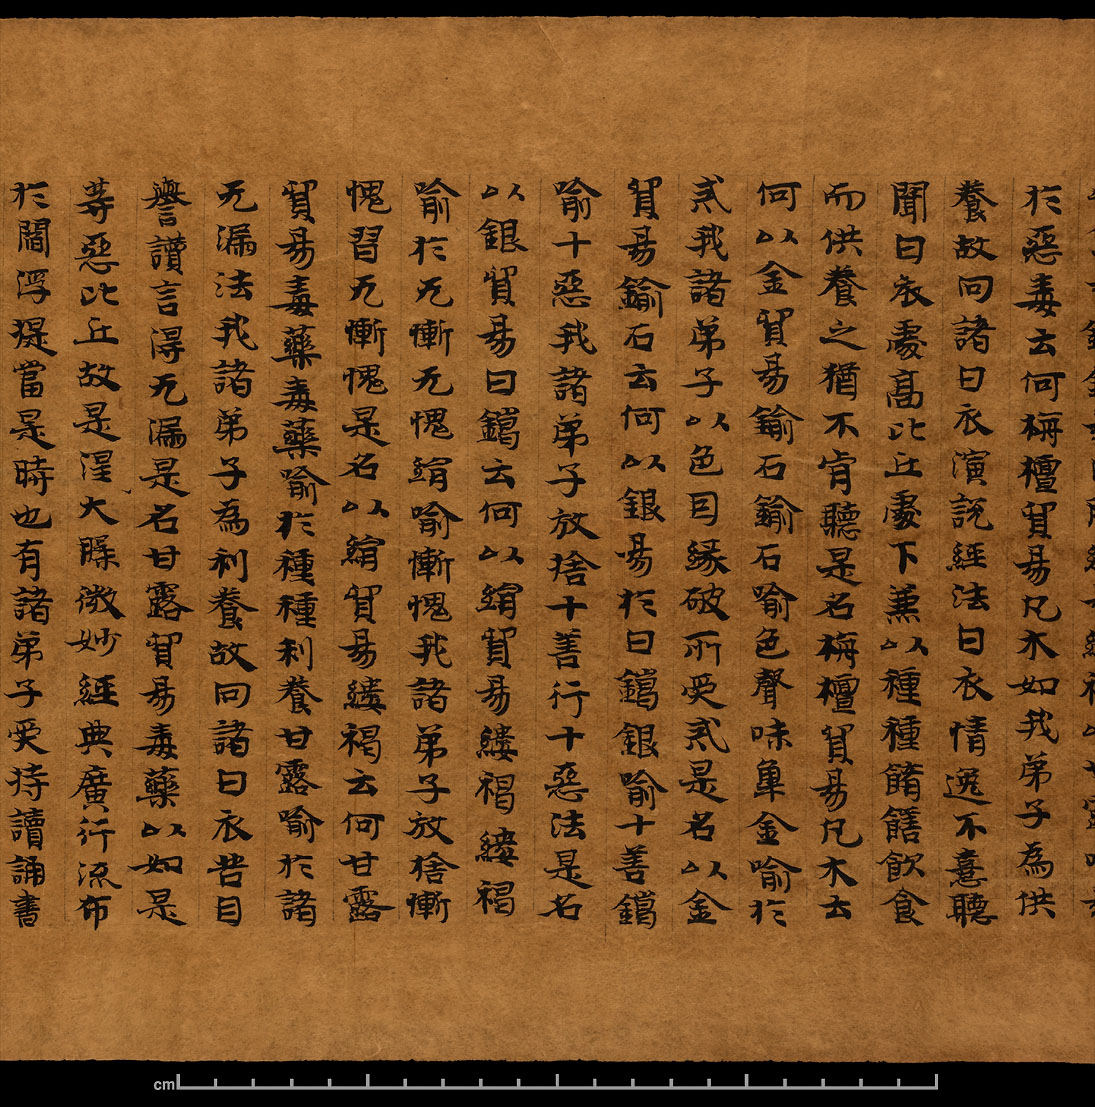 於惡毒云何栴檀貿易凡木如我弟子為供
養故向諸白衣演說經法白衣情逸不憙聽
聞白衣處高比丘處下兼以種種餚饍飲食
而供養之猶不肯聽是名栴檀貿易凡木云
何以金貿易鍮石鍮石喻色聲味金喻於
戒我諸弟子以色因緣破所受戒是名以金
貿易鍮石云何以銀易於白鑞銀喻十善鑞
喻十惡我諸弟子放捨十善行十惡法是名
以銀貿易白鑞云何以絹貿易縷褐縷褐
喻於无慚无愧絹喻慚愧我諸弟子放捨慚
愧習无慚愧是名以絹貿易縷褐云何甘露
貿易毒藥毒藥喻於種種利養甘露喻於諸
无漏法我諸弟子為利養故向諸白衣苦自
譽讚言得无漏是名甘露貿易毒藥以如是
等惡比丘故是涅大微妙經典廣行流布
於閻浮提當是時也有諸弟子受持讀誦書
cm